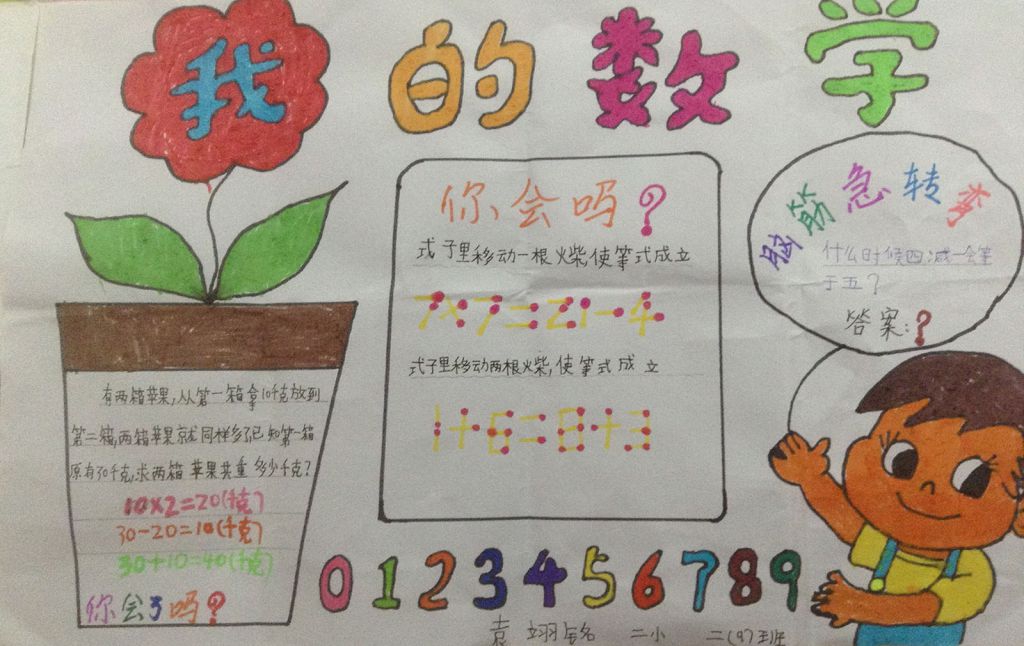 我的数学
你会吗?
式子里移动一根火柴,使等式成立
7×7=21-4
式子里移动两根火柴,使等式成立
1+6=8+3
脑筋急转弯
什么时候四减一会等
于五?
答案:?
有两箱苹果,从第一箱拿10千克放到
第二箱,两箱苹果就同样多,已知第一箱
原有30千克,求两箱苹果共重多少千克?
10×2=20(千克)
30-20=10(千克)
30+10=40(千克)
你会了吗?
0123456789
袁翊铭 二小 二(9)班